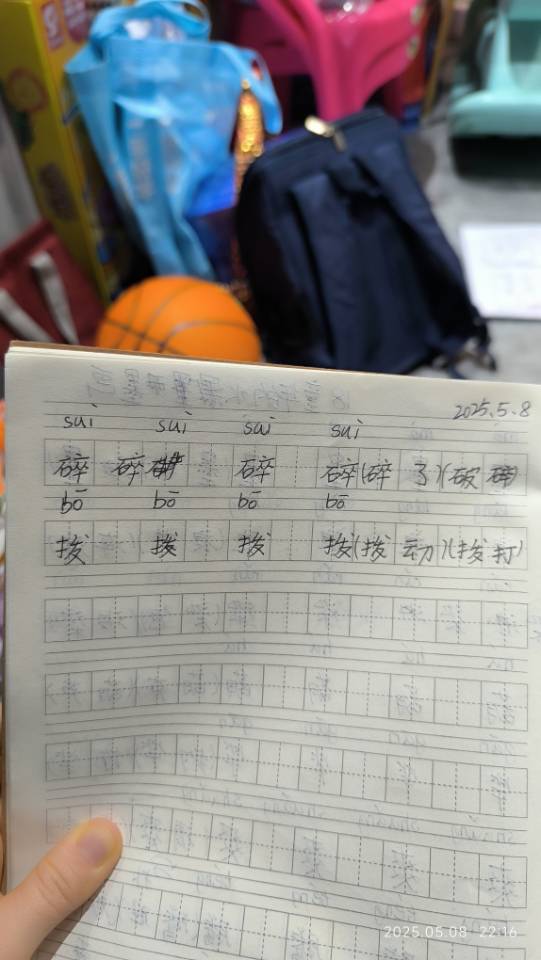 2025.5.8
sui sui sui sui
碎 碎 碎 碎(碎了)(破碎)
bō bō bō bō
拨 拨 拨 拨(拨动)(拨打)
2025.05.08 22:16